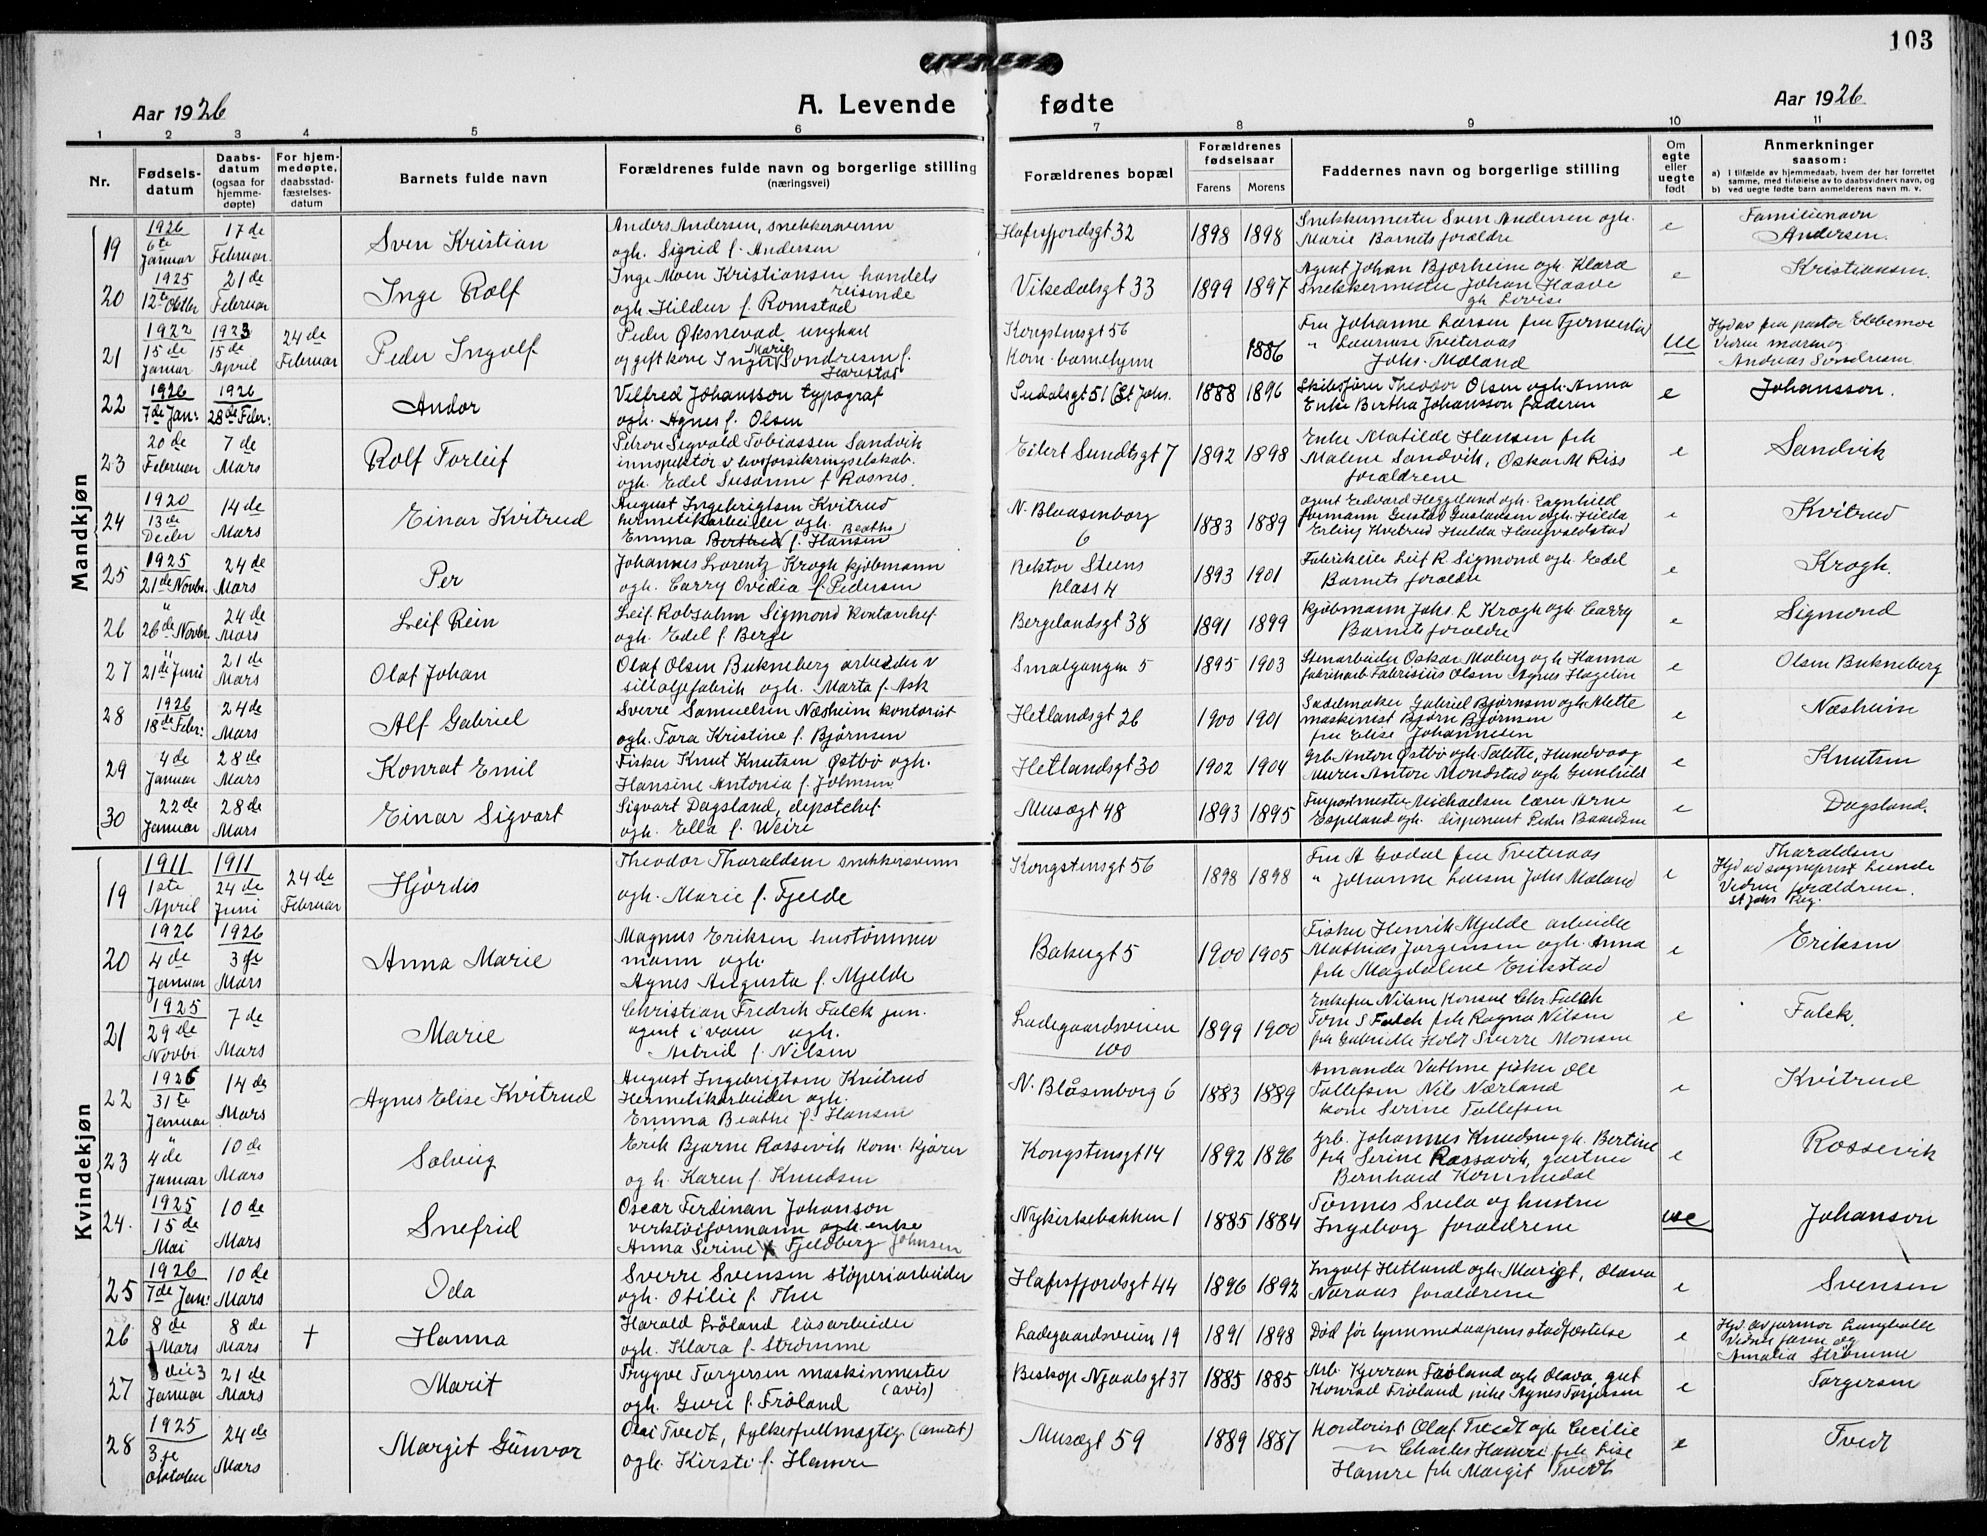 103
Aar 1926
A. Levende fødte
Aar 1926
1 2 3 4 5 6 7 8 9 10 11
Nr.
Fødsels-
datum
Daabs-
datum
(ogsaa for
hjemme-
døpte)
For hjem-
medøpte,
daabsstad-
fæstelses-
datum
Barnets fulde navn
Forældrenes fulde navn og borgerlige stilling
(næringsvei)
Forældrenes bopæl
Forældrenes
fødselsaar
Farens Morens
Faddernes navn og borgerlige stilling
Om
egte
eller
uegte
født
Anmerkninger
saasom:
a) I tilfælde av hjemmedaab, hvem der har forrettet
samme, med tilføielse av to daabsvidners navn, og
b) ved uegte fødte barn anmelderens navn m. v.
Mandkjøn
19
1926
6te
Januar
17de
Februar
Sven Kristian
Anders Andersen, snekkersvenn
ogh. Sigrid f. Andersen
Hafrsfjordsgt 32
1898 1898
Snekkermester Sven Andersen ogh.
Marie Barnets forældre
e
Familienavn
Andersen.
20
1925
12te Oktbr
21de
Februar
Inge Rolf
Inge Moen Kristiansen handels
reisende
ogh Hildur f. Romstad
Vikedalsgt 33
1899 1897
Agent Johan Bjørheim ogh. Klara
Snekkermester Johan Haave
gh Lovise
e
Kristiansen.
21
1922
15de
Januar
1923
15de
April
24de
Februar
Peder Ingolf
Peder Øksnevad ungkarl
og gift kone Inga Marie Sondresen f.
Harestad
Kongstensgt 56
Kom. barnehjem
1886
Fru Johanne Larsen fru Fjermestad
" Laurense Tveteraas
Johs. Mæland
ue
Hjd av frn pastor Ebbemoe
Vidne moren og
Andreas Sondresen
22
1926
7de Jan:
1926
28de Febr:
Andor
Vilfred Johansson typograf
ogh. Agnes f. Olsen
Suldalsgt 51 (St Johs.
1888 1896
Skibsfører Theodor Olsen ogh. Anna
Enke Bertha Johansson faderen
e
Johansson.
23
20de
Februar
7de
Mars
Rolf Torleif
Petron Sigvald Tobiassen Sandvik
innspektør v livsforsikringselskab.
ogh. Edel Susanne f Rosnes.
Eilert Sundtsgt 7
1892 1898
Enke Matilde Hansen frk
Malene Sandvik, Oskar M Riss
forældrene
e
Sandvik
24
1920
13de
Decbr
14de
Mars
Einar Kvitrud
August Ingebrigtsen Kvitrud
hermetikarbeider ogh.
Emma Beathe f. Hansen
N. Blaasenborg
6
1883 1889
Agent Edvard Heggeland ogh. Ragnhild
formann Gustav Gustavsen ogh. Hilda
Erling Kvitrud Hulda Haugvaldstad
e
Kvitrud
25
1925
21de Novbr.
24de
Mars
Per
Johannes Lorentz Krogh kjøbmann
ogh. Carry Ovidia f. Pedersen
Rektor Steens
plass 4
1893 1901
Fabrikeier Leif R. Sigmond ogh. Edel
Barnets forældre
e
Krogh.
26
"
26de Novbr.
24de
Mars
Leif Rein
Leif Robsahm Sigmond kontorchef
ogh. Edel f. Berge
Bergelandsgt 38
1891 1899
Kjøbmann Johs. L Krogh ogh. Carry
Barnets forældre
e
Sigmond
27
"
21de Juni
21de
Mars
Olaf Johan
Olaf Olsen Bukneberg arbeider v
sildoljefabrik ogh. Marta f. Ask
Smalgangen 5
1895 1903
Stenarbeider Oskar Moberg ogh Hanna
fabrikarb Fabrisius Olsen Agnes Hagelin
e
Olsen Bukneberg
28
1926
18de Febr:
24de
Mars
Alf Gabriel
Sverre Samuelsen Næsheim kontorist
ogh. Tora Kristine f. Bjørnsen
Hetlandsgt 26
1900 1901
Sadelmaker Gabriel Bjørnsen ogh. Mette
maskinist Bjørn Bjørnsen
fru Elise Johannesen
e
Næsheim
29
4de
Januar
28de
Mars
Konrat Emil
Fisker Knut Knutsen Østbø ogh.
Hansine Antonia f. Johnsen
Hetlandsgt 30
1902 1904
Grb Anton Østbø ogh. Talette, Hundvaag
murer Anton Mondstad ogh Gunhild
e
Knutsen
30
22de
Januar
28de
Mars
Einar Sigvart
Sigvart Dagsland, depotchef
ogh. Ella f. Weire
Musægt 48
1893 1895
Frupostmester Michaelsen lærer Arne
Espeland ogh. disponent Peder Baardsen
e
Dagsland.
Kvindekjøn
19
1911
1ste
April
1911
24de
Juni
24de
Februar
Hjørdis
Theodor Tharaldsen snekkersvenn
ogh. Marie f. Fjelde
Kongstensgt 56
1898 1898
Fru A Godal fru Tveteraas
" Johanne Larsen Johs Mæland
e
Tharaldsen
Hjd av sogneprest Lunde
Vidne forældrene.
St Johs Reg.
20
1926
4de
Januar
1926
3dje
Mars
Anna Marie
Magnus Eriksen hustømmer
mann ogh.
Agnes Augusta f. Mjelde
Bakkegt 5
1900 1905
Fisker Henrik Mjelde arbeider
Mathias Jørgensen ogh. Anna
frk Magdalene Erikstad
e
Eriksen
21
1925
29de
Novbr
7de
Mars
Marie
Christian Fredrik Falck jun.
agent i varer ogh.
Astrid f. Nilsen
Ladegaardsveien
100
1899 1900
Enkefru Nilsen Konsul Chr. Falck
Tom S Falck frk Ragna Nilsen
frk Gabrielle Holst Sverre Monsen
e
Falck.
22
1926
31te
Januar
14de
Mars
Agnes Elise Kvitrud
August Ingebrigtsen Kvitrud
Hermetikarbeider ogh.
Emma Beathe f. Hansen
N. Blåsenborg 6
1883 1889
Amanda Vathne fisker Ole
Tollefsen Nils Nærland
kone Serine Tollefsen
e
Kvitrud
23
"
4de
Januar
10de
Mars
Solveig
Erik Bjarne Rossevik kom. kjører
ogh. Karen f. Knudsen
Kongstensgt 14
1892 1896
Grb. Johannes Knudsen gh. Bertine
frk Serine Rossevik, gartner
Bernhard Kommedal
e
Rossevik
24.
1925
15de
Mai
10de
Mars
Snefrid
Oscar Ferdinan Johanson
verktøiformann ogh. enke
Anna Serine f Fjeldberg Johnsen
Nykirkebakken 1
1885 1884
Tønnes Sveila og hustru
Ingeborg forældrene
ue
Johanson
25
1926
7de Jan:
10de
Mars
Oda
Sverre Svensen støperiarbeider
ogh. Otilie f. Thu
Hafrsfjordsgt 44
1896 1892
Ingolf Hetland ogh. Margit, Olava
Noraas forældrene
e
Svensen
26
8de
Mars
8de
Mars
†
Hanna
Harald Frøland løsarbeider
ogh. Klara f. Strømme
Ladegaardsveien 19
1891 1898
Død før hjemmedaapens stadfæstelse
e
Hjd av jormor Langballe
Vidner faren og
Amalia Strømme
27
3die
Januar
21de
Mars
Marit
Trygve Torgersen maskinmester
(avis)
ogh. Guri f. Frøland
Biskop Njaalsgt 37
1885 1885
Arb Kjerran Frøland ogh Olava, gut
Konrad Frøland pike Agnes Torgersen
e
Torgersen
28
1925
3je
Oktober
24de
Mars
Margit Gunvor
Olai Tvedt, fylkesfullmægtig (amtet)
ogh. Kirsti f. Hamre
Musægt 59
1889 1887
Kontorist Olaf Tvedt ogh Cecilie
Charles Hamre frk Lise
Hamre frk Margit Tvedt
e
Tvedt